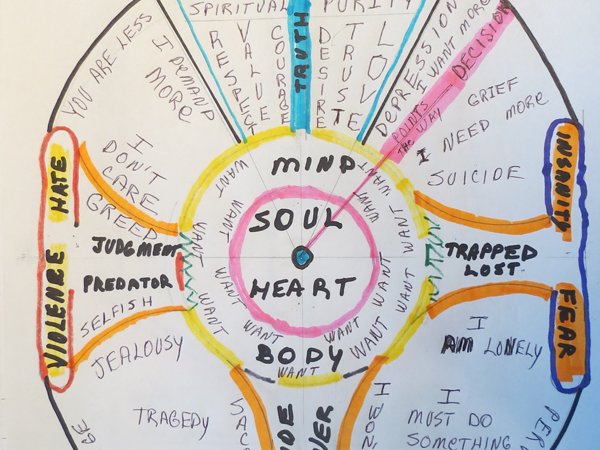 SPIRITUAL PURITY
YOU ARE LESS
I DEMAND
MORE
RESPECT
VALUE
COURAGE
TRUTH
DESIRE
TRUST
LOVE
DEPRESSION
I WANT MORE
DECISION
POINTS
THE WAY
GRIEF
I NEED MORE
SUICIDE
I
DON'T
CARE
GREED
HATE
VIOLENCE
JUDGMENT
PREDATOR
SELFISH
JEALOUSY
MIND
SOUL
HEART
BODY
WANT
WANT
WANT
WANT
WANT
WANT
WANT
WANT
WANT
WANT
WANT
WANT
WANT
WANT
INSANITY
FEAR
TRAPPED
LOST
I
AM LONELY
TRAGEDY
I
MUST DO
SOMETHING